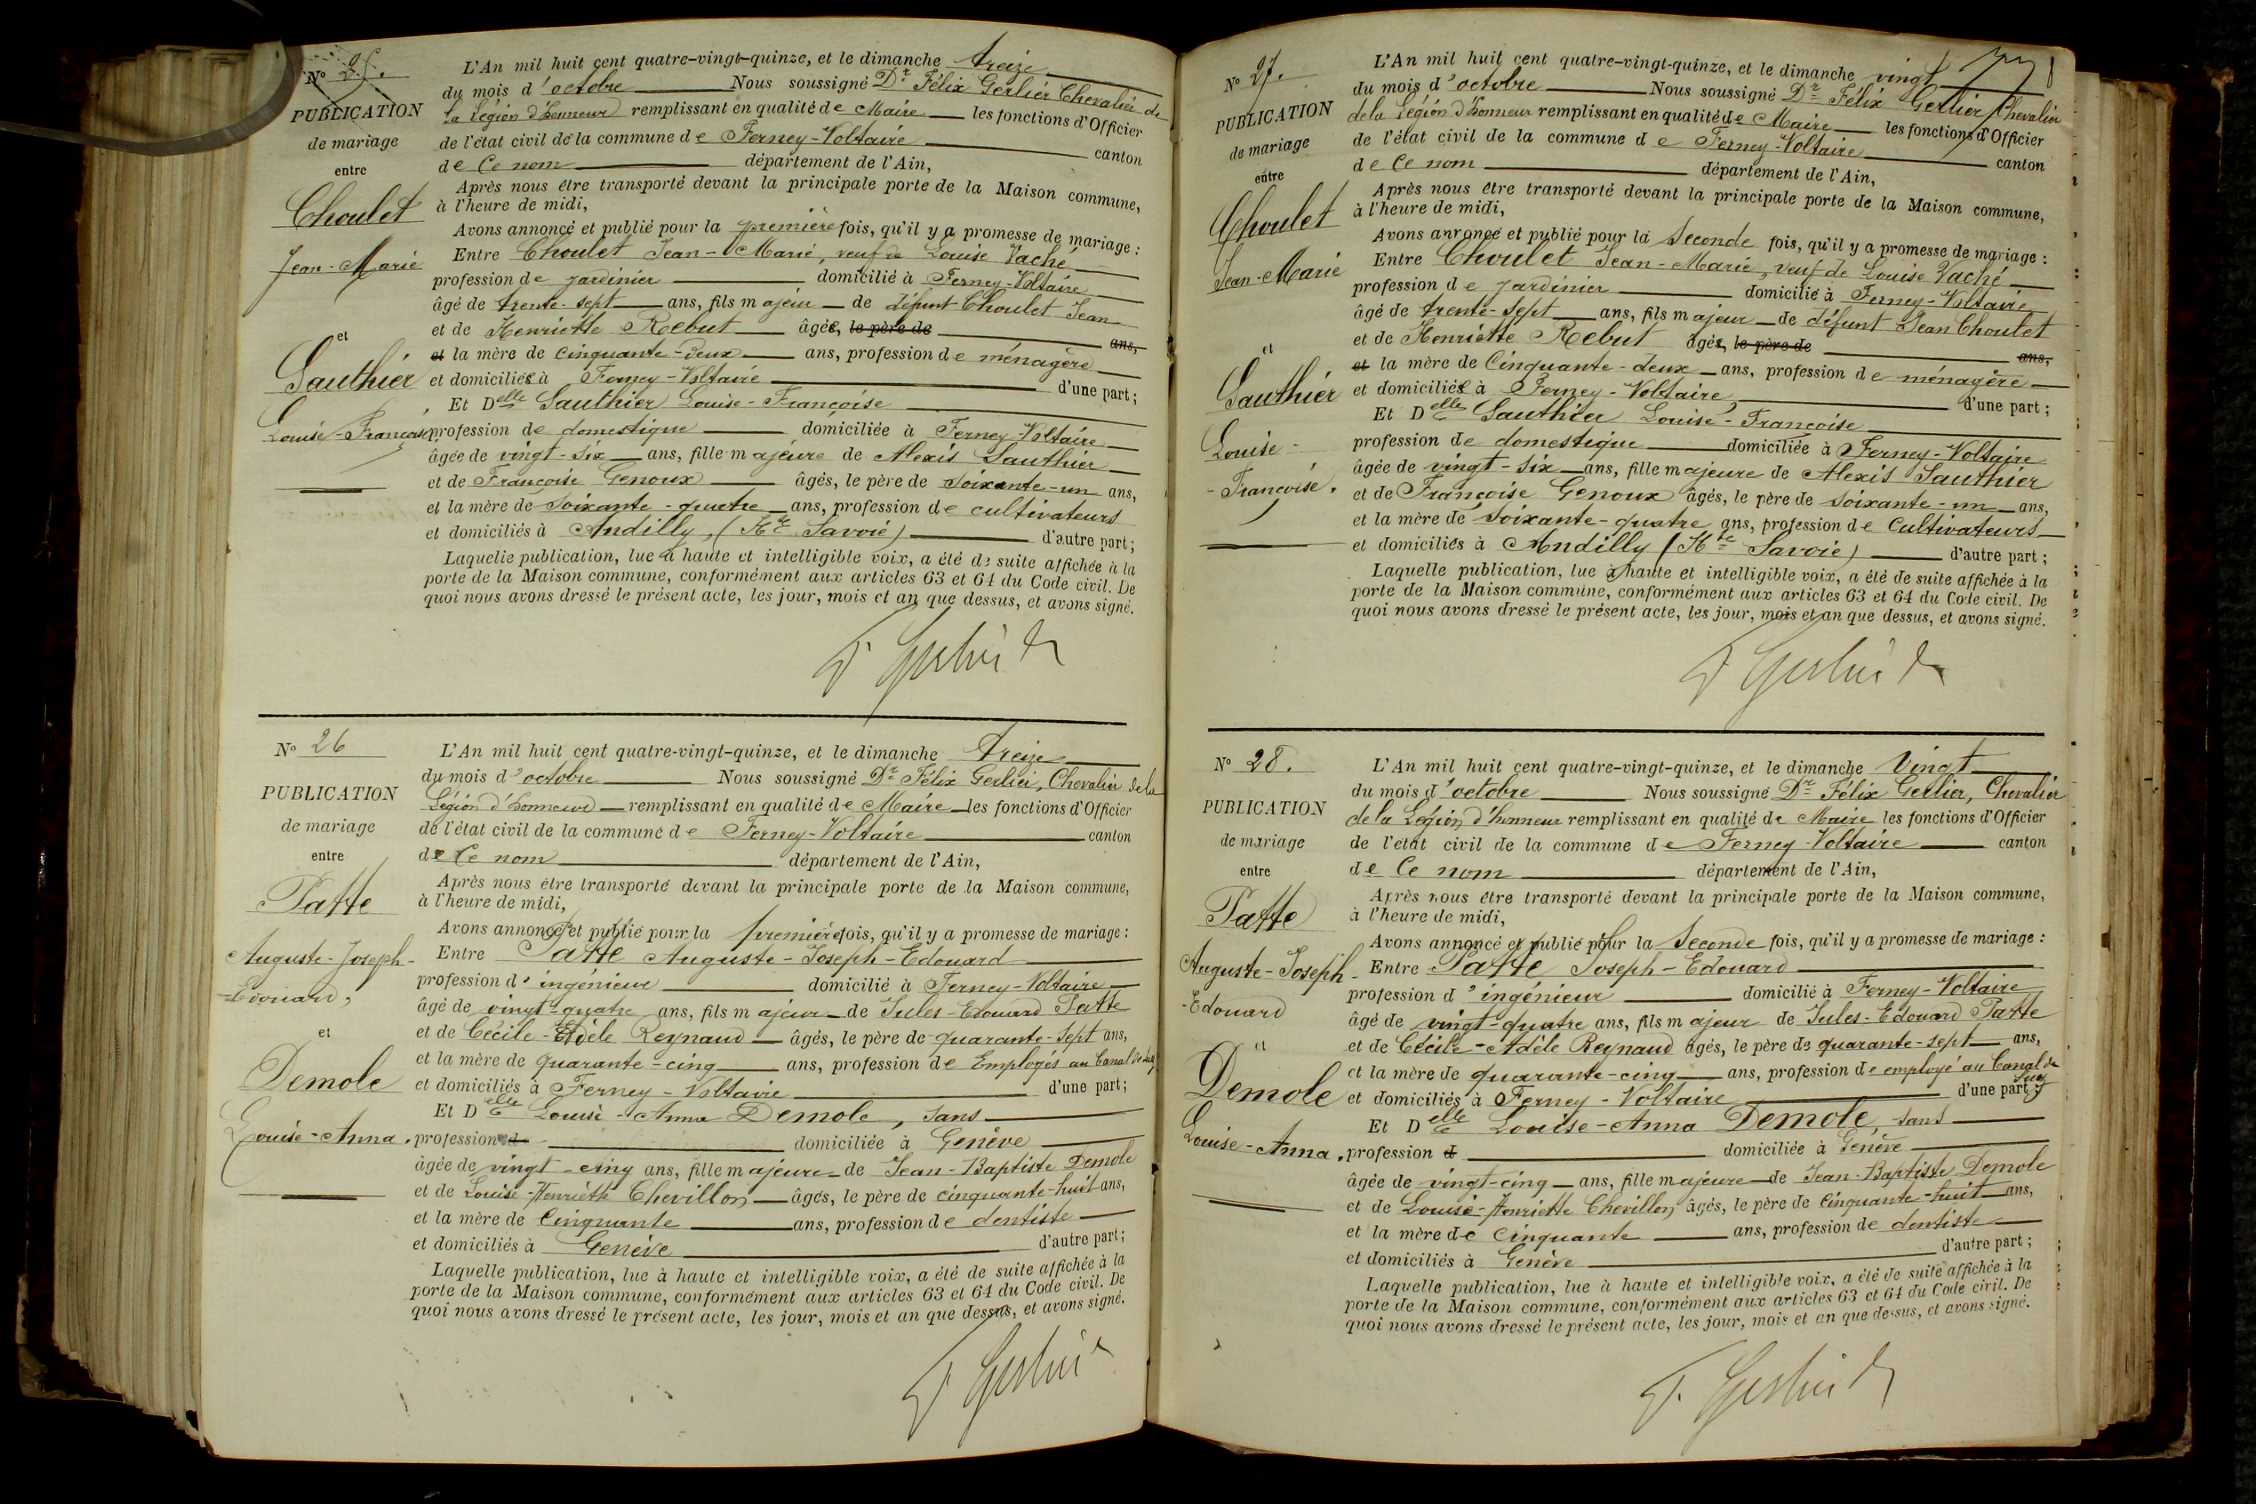 N° 25.
PUBLICATION
de mariage
entre
Choulet
Jean-Marie
et
Gauthier
Louise-Françoise
L'An mil huit cent quatre-vingt-quinze, et le dimanche treize
du mois d'octobre Nous soussigné Dr Félix Gerlier Chevalier de
la Légion d'honneur remplissant en qualité de Maire les fonctions d'Officier
de l'état civil de la commune de Ferney-Voltaire canton
de Ce nom département de l'Ain,
Après nous être transporté devant la principale porte de la Maison commune,
à l'heure de midi,
Avons annoncé et publié pour la première fois, qu'il y a promesse de mariage :
Entre Choulet Jean-Marie, veuf de Louise Vaché
profession de jardinier domicilié à Ferney-Voltaire
âgé de trente-sept ans, fils majeur de défunt Choulet Jean
et de Henriette Rebut âgée, le père de ans,
et la mère de cinquante-deux ans, profession de ménagère
et domiciliée à Ferney-Voltaire d'une part ;
Et Delle Gauthier Louise-Françoise
profession de domestique domiciliée à Ferney-Voltaire
âgée de vingt-six ans, fille majeure de Alexis Gauthier
et de Françoise Genoux âgés, le père de soixante-un ans,
et la mère de soixante-quatre ans, profession de cultivateurs
et domiciliés à Andilly, (Hte Savoie) d'autre part ;
Laquelle publication, lue à haute et intelligible voix, a été de suite affichée à la
porte de la Maison commune, conformément aux articles 63 et 64 du Code civil. De
quoi nous avons dressé le présent acte, les jour, mois et an que dessus, et avons signé.
F. Gerlier Dr
N° 26
PUBLICATION
de mariage
entre
Patte
Auguste-Joseph-
Edouard,
et
Demole
Louise-Anna.
L'An mil huit cent quatre-vingt-quinze, et le dimanche treize
du mois d'octobre Nous soussigné Dr Félix Gerlier, Chevalier de la
Légion d'honneur remplissant en qualité de Maire les fonctions d'Officier
de l'état civil de la commune de Ferney-Voltaire canton
de Ce nom département de l'Ain,
Après nous être transporté devant la principale porte de la Maison commune,
à l'heure de midi,
Avons annoncé et publié pour la première fois, qu'il y a promesse de mariage :
Entre Patte Auguste-Joseph-Edouard
profession d'ingénieur domicilié à Ferney-Voltaire
âgé de vingt-quatre ans, fils majeur de Jules-Edouard Patte
et de Cécile-Adèle Reynaud âgés, le père de quarante-sept ans,
et la mère de quarante-cinq ans, profession de Employés au Canal de Suez
et domiciliés à Ferney-Voltaire d'une part ;
Et Delle Louise-Anna Demole, sans
profession d domiciliée à Genève
âgée de vingt-cinq ans, fille majeure de Jean-Baptiste Demole
et de Louise-Henriette Chevillon âgés, le père de cinquante-huit ans,
et la mère de Cinquante ans, profession de dentiste
et domiciliés à Genève d'autre part ;
Laquelle publication, lue à haute et intelligible voix, a été de suite affichée à la
porte de la Maison commune, conformément aux articles 63 et 64 du Code civil. De
quoi nous avons dressé le présent acte, les jour, mois et an que dessus, et avons signé.
F. Gerlier
N° 27.
PUBLICATION
de mariage
entre
Choulet
Jean-Marie
et
Gauthier
Louise-
-Françoise.
L'An mil huit cent quatre-vingt-quinze, et le dimanche vingt
du mois d'octobre Nous soussigné Dr Félix Gerlier, Chevalier
de la Légion d'honneur remplissant en qualité de Maire les fonctions d'Officier
de l'état civil de la commune de Ferney-Voltaire canton
de Ce nom département de l'Ain,
Après nous être transporté devant la principale porte de la Maison commune,
à l'heure de midi,
Avons annoncé et publié pour la Seconde fois, qu'il y a promesse de mariage :
Entre Choulet Jean-Marie, veuf de Louise Vaché
profession de jardinier domicilié à Ferney-Voltaire
âgé de trente-sept ans, fils majeur de défunt Jean Choulet
et de Henriette Rebut âgée, le père de ans,
et la mère de Cinquante-deux ans, profession de ménagère
et domiciliée à Ferney-Voltaire d'une part ;
Et Delle Gauthier Louise-Françoise
profession de domestique domiciliée à Ferney-Voltaire
âgée de vingt-six ans, fille majeure de Alexis Gauthier
et de Françoise Genoux âgés, le père de soixante-un ans,
et la mère de soixante-quatre ans, profession de Cultivateurs
et domiciliés à Andilly (Hte Savoie) d'autre part ;
Laquelle publication, lue à haute et intelligible voix, a été de suite affichée à la
porte de la Maison commune, conformément aux articles 63 et 64 du Code civil. De
quoi nous avons dressé le présent acte, les jour, mois et an que dessus, et avons signé.
F. Gerlier Dr
N° 28.
PUBLICATION
de mariage
entre
Patte
Auguste-Joseph-
-Edouard
et
Demole
Louise-Anna.
L'An mil huit cent quatre-vingt-quinze, et le dimanche Vingt
du mois d'octobre Nous soussigné Dr Félix Gerlier, Chevalier
de la Légion d'honneur remplissant en qualité de Maire les fonctions d'Officier
de l'état civil de la commune de Ferney-Voltaire canton
de Ce nom département de l'Ain,
Après nous être transporté devant la principale porte de la Maison commune,
à l'heure de midi,
Avons annoncé et publié pour la Seconde fois, qu'il y a promesse de mariage :
Entre Patte Joseph-Edouard
profession d'ingénieur domicilié à Ferney-Voltaire
âgé de vingt-quatre ans, fils majeur de Jules-Edouard Patte
et de Cécile-Adèle Reynaud âgés, le père de quarante-sept ans,
et la mère de quarante-cinq ans, profession de employé au Canal de Suez
et domiciliés à Ferney-Voltaire d'une part ;
Et Delle Louise-Anna Demole, sans
profession d domiciliée à Genève
âgée de vingt-cinq ans, fille majeure de Jean-Baptiste Demole
et de Louise-Henriette Chevillon âgés, le père de Cinquante-huit ans,
et la mère de Cinquante ans, profession de dentiste
et domiciliés à Genève d'autre part ;
Laquelle publication, lue à haute et intelligible voix, a été de suite affichée à la
porte de la Maison commune, conformément aux articles 63 et 64 du Code civil. De
quoi nous avons dressé le présent acte, les jour, mois et an que dessus, et avons signé.
F. Gerlier Dr